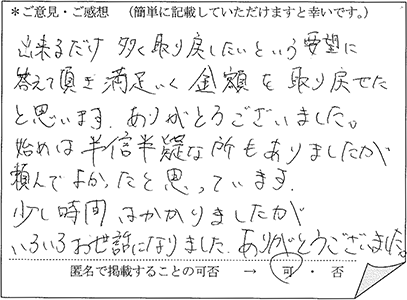 ＊ご意見・ご感想　（簡単に記載していただけますと幸いです。）
出来るだけ 多く取り戻したいという要望に
答えて頂き 満足いく 金額を 取り戻せた
と思います. ありがとうございました。
始めは 半信半疑な所もありましたが
頼んでよかったと思っています.
少し時間はかかりましたが
いろいろお世話になりました. ありがとうございました。
匿名で掲載することの可否　→　可・否